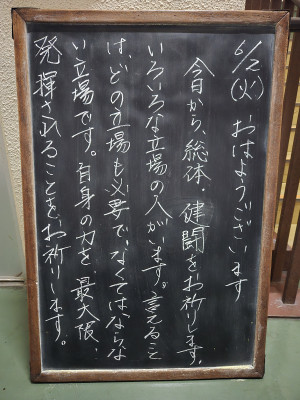 6/2(火) おはようございます
今日から、総体。健闘をお祈りします。
いろいろな立場の人がいます。言えること
は、どの立場も必要で、なくてはならな
い立場です。自身の力を、最大限、
発揮されることを、お祈りします。